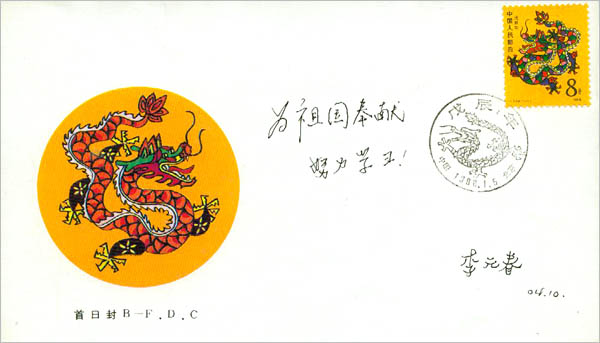 中国人民邮政
8分
戊辰年
中国 1988.1.5 北京
为祖国奉献
努力学习!
李元春
04.10.
首日封B—F.D.C